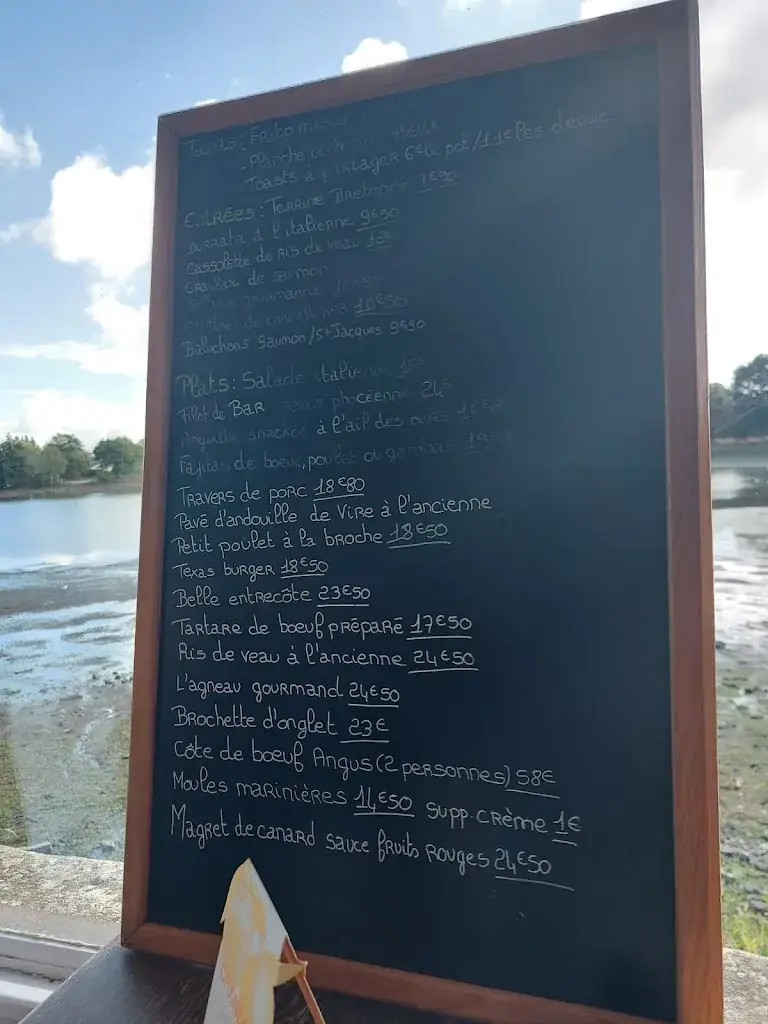 Fritto
- Planche
- Toasts à partager 6€ le pot / 11€ les deux
Entrées : Terrine Bretonne 7€90
Burrata à l'italienne 9€90
Cassolette de Ris de veau
Gravlax de saumon
gourmande
10€50
Baluchons Saumon / St Jacques 9€90
Plats : Salade italienne
Filet de Bar sauce phocéenne 24€
Anguille snackée à l'ail des ours
Fajitas de boeuf, poulet ou gambas
Travers de porc 18€80
Pavé d'andouille de Vire à l'ancienne
Petit poulet à la broche 18€50
Texas burger 18€50
Belle entrecôte 23€50
Tartare de boeuf préparé 17€50
Ris de veau à l'ancienne 24€50
L'agneau gourmand 24€50
Brochette d'onglet 23€
Côte de boeuf Angus (2 personnes) 58€
Moules marinières 14€50 supp. crème 1€
Magret de canard sauce fruits rouges 24€50